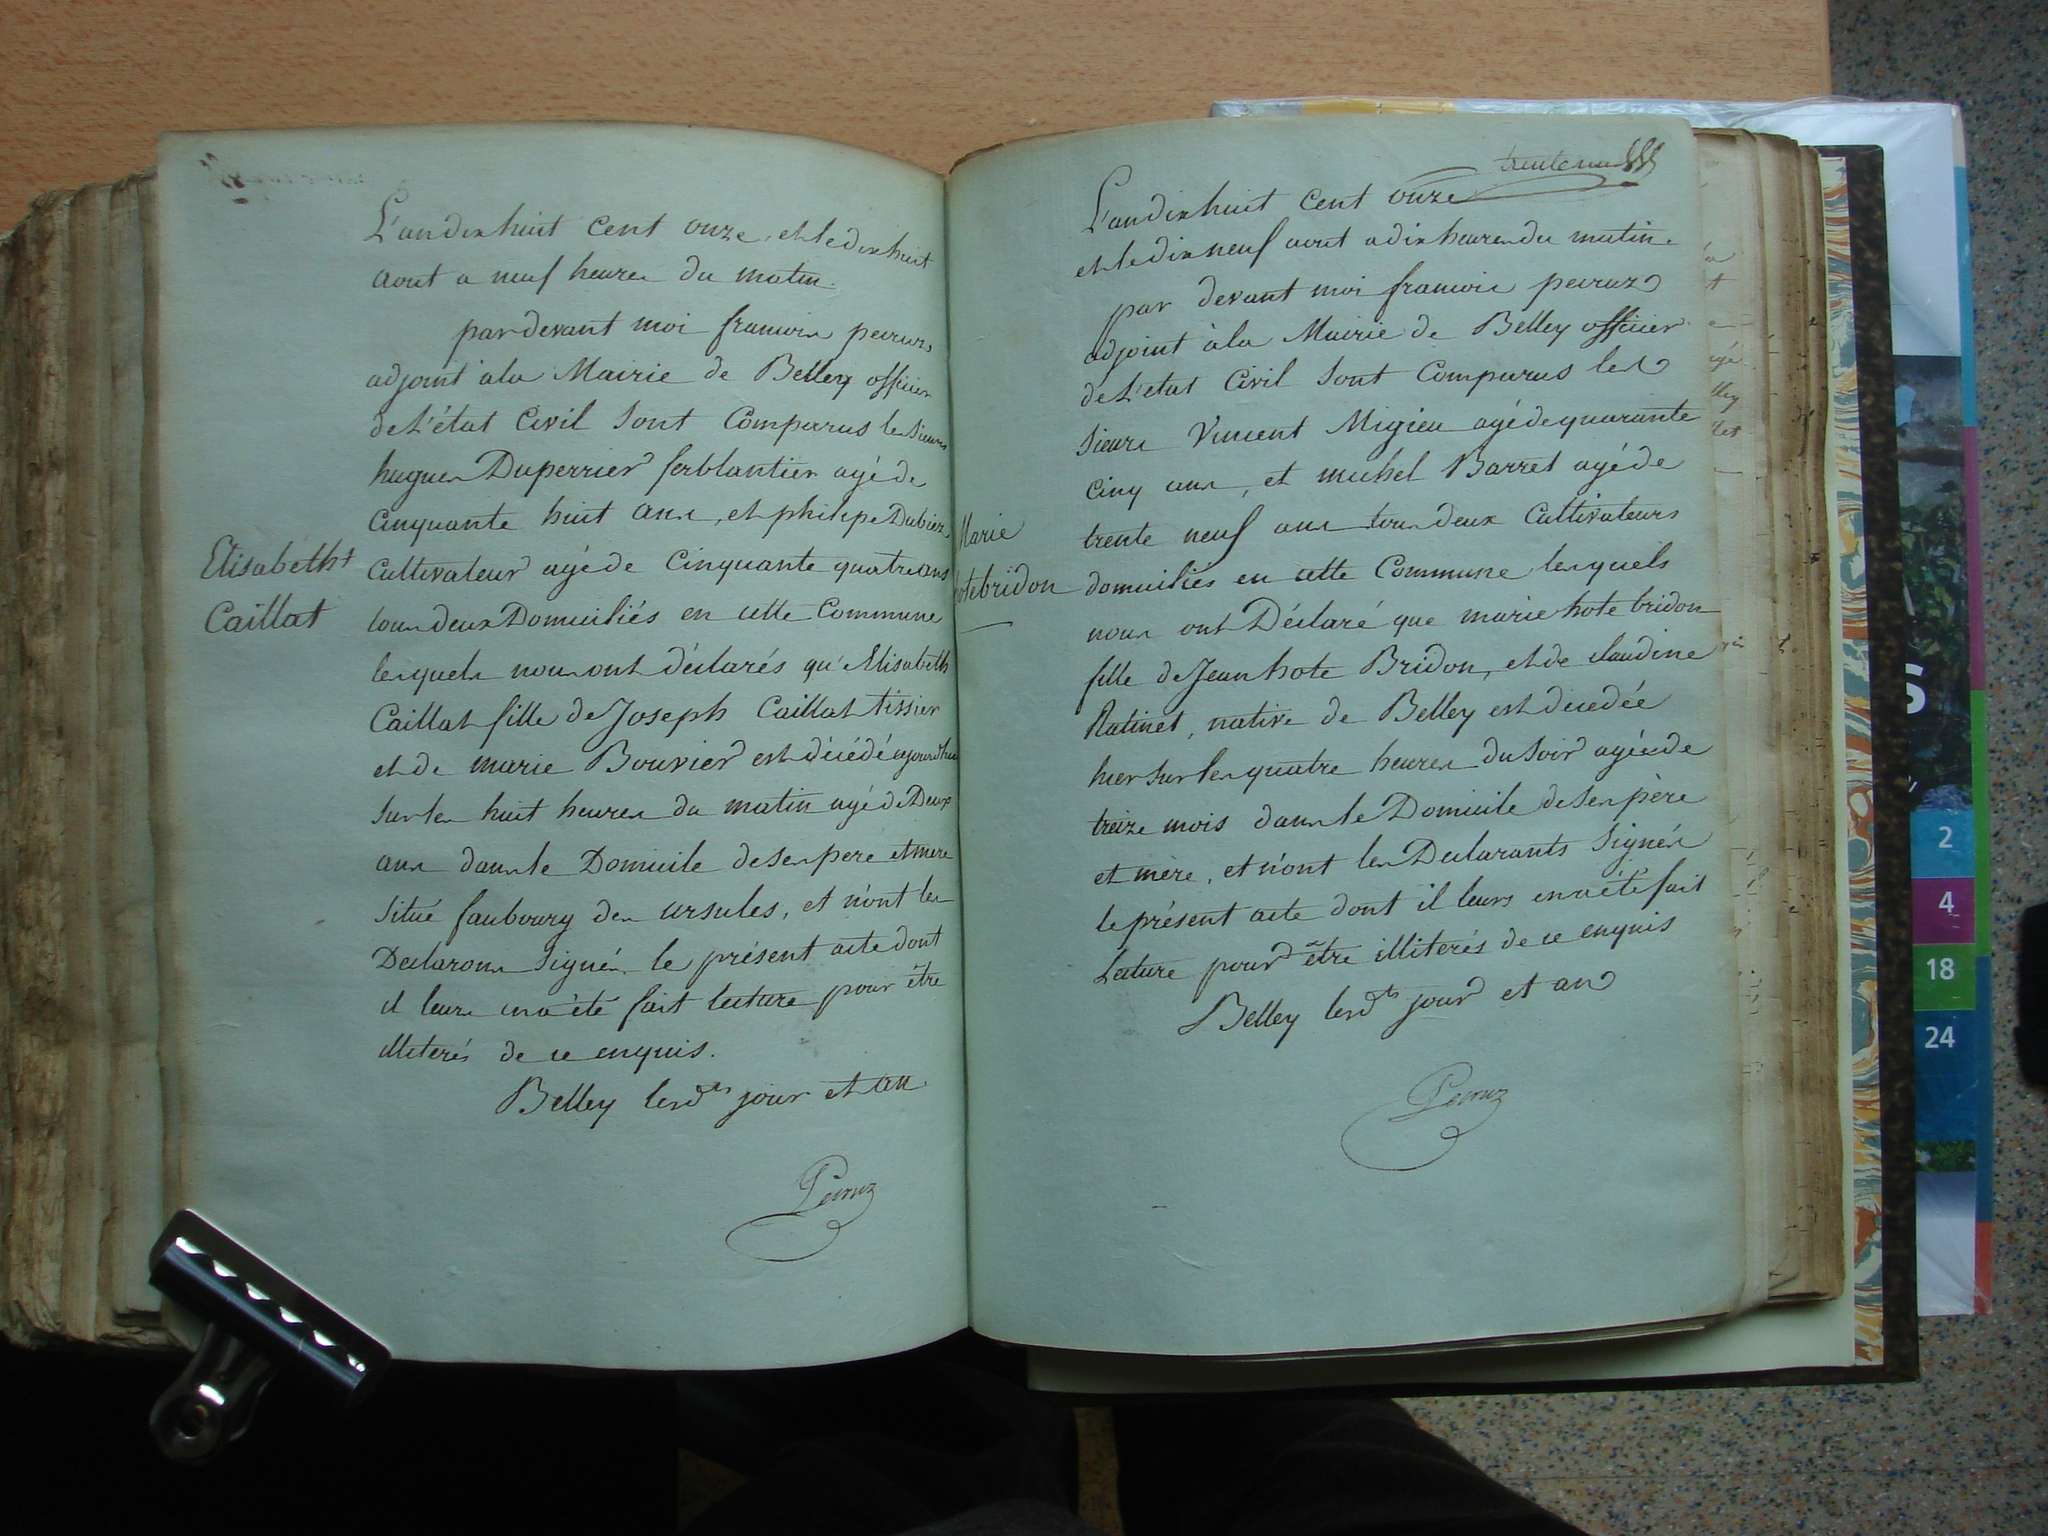 L'an dix huit cent onze, et le dix huit
aout a neuf heures du matin.
par devant moi francois peiruz
adjoint à la Mairie de Belley officier
de L'état Civil sont Comparus les sieurs
hugues Duperrier ferblantier agé de
Cinquante huit ans, et philipe Dubiez
Cultivateur agé de Cinquante quatre ans
tous deux Domiciliés en cette Commune
lesquels nous ont déclarés qu'Elisabeth
Caillat fille de Joseph Caillat tissier
et de marie Bouvier est décédé aujourd'hui
sur les huit heures du matin agé de Deux
ans dans le Domicile de ses pere et mere
situé faubourg des ursules, et n'ont les
Declarans signés le présent acte dont
il leurs en a été fait lecture pour être
illiterés de ce enquis.
Belley lesd.ts jour et an
Peiruz
Elisabetht
Caillat
trente neuf
L'an dix huit cent onze
et le dix neuf aout a dix heures du matin.
par devant moi francois peiruz
adjoint à la Mairie de Belley officier
de L'etat Civil sont Comparus les
sieurs Vincent Migieu agé de quarante
cinq ans, et michel Barret agé de
trente neuf ans tous deux Cultivateurs
domiciliés en cette Commune lesquels
nous ont Déclaré que marie hote bridon
fille de Jean hote Bridon, et de claudine
Ratinet, native de Belley est décedée
hier sur les quatre heures du soir agée de
treize mois dans le Domicile de ses père
et mère, et n'ont les Declarants signés
le présent acte dont il leurs en a été fait
Lecture pour être illiterés de ce enquis
Belley lesd.ts jour et an
Peiruz
Marie
hotebridon
S
2
4
18
24